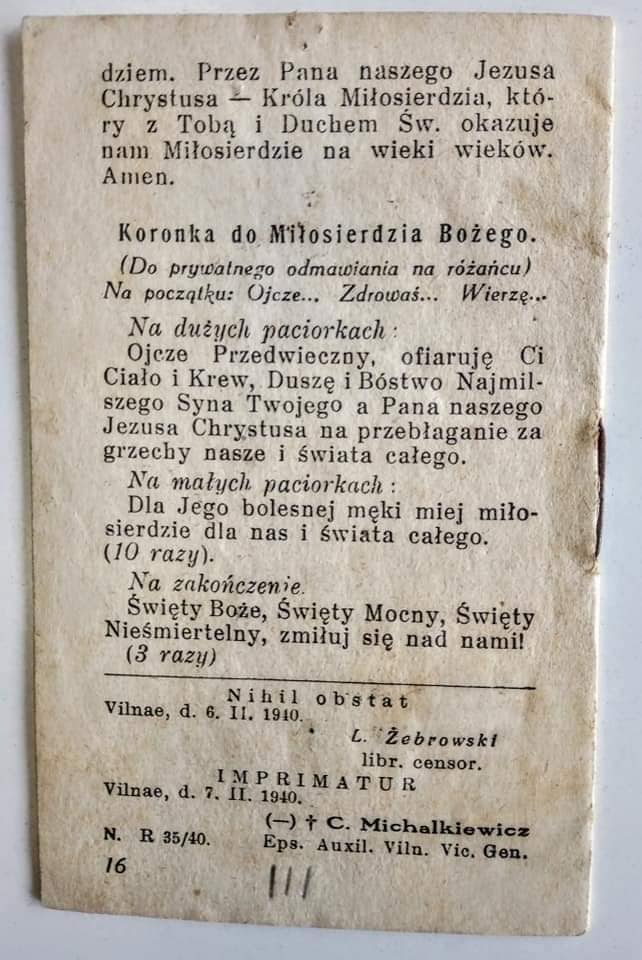 dziem. Przez Pana naszego Jezusa
Chrystusa — Króla Miłosierdzia, któ-
ry z Tobą i Duchem Św. okazuje
nam Miłosierdzie na wieki wieków.
Amen.
Koronka do Miłosierdzia Bożego.
(Do prywatnego odmawiania na różańcu)
Na początku: Ojcze... Zdrowaś... Wierzę...
Na dużych paciorkach:
Ojcze Przedwieczny, ofiaruję Ci
Ciało i Krew, Duszę i Bóstwo Najmil-
szego Syna Twojego a Pana naszego
Jezusa Chrystusa na przebłaganie za
grzechy nasze i świata całego.
Na małych paciorkach:
Dla Jego bolesnej męki miej miło-
sierdzie dla nas i świata całego.
(10 razy).
Na zakończenie.
Święty Boże, Święty Mocny, Święty
Nieśmiertelny, zmiłuj się nad nami!
(3 razy)
Nihil obstat
Vilnae, d. 6. II. 1940.
L. Żebrowski
libr. censor.
IMPRIMATUR
Vilnae, d. 7. II. 1940.
(—) † C. Michalkiewicz
N. R 35/40. Eps. Auxil. Viln. Vic. Gen.
16
111